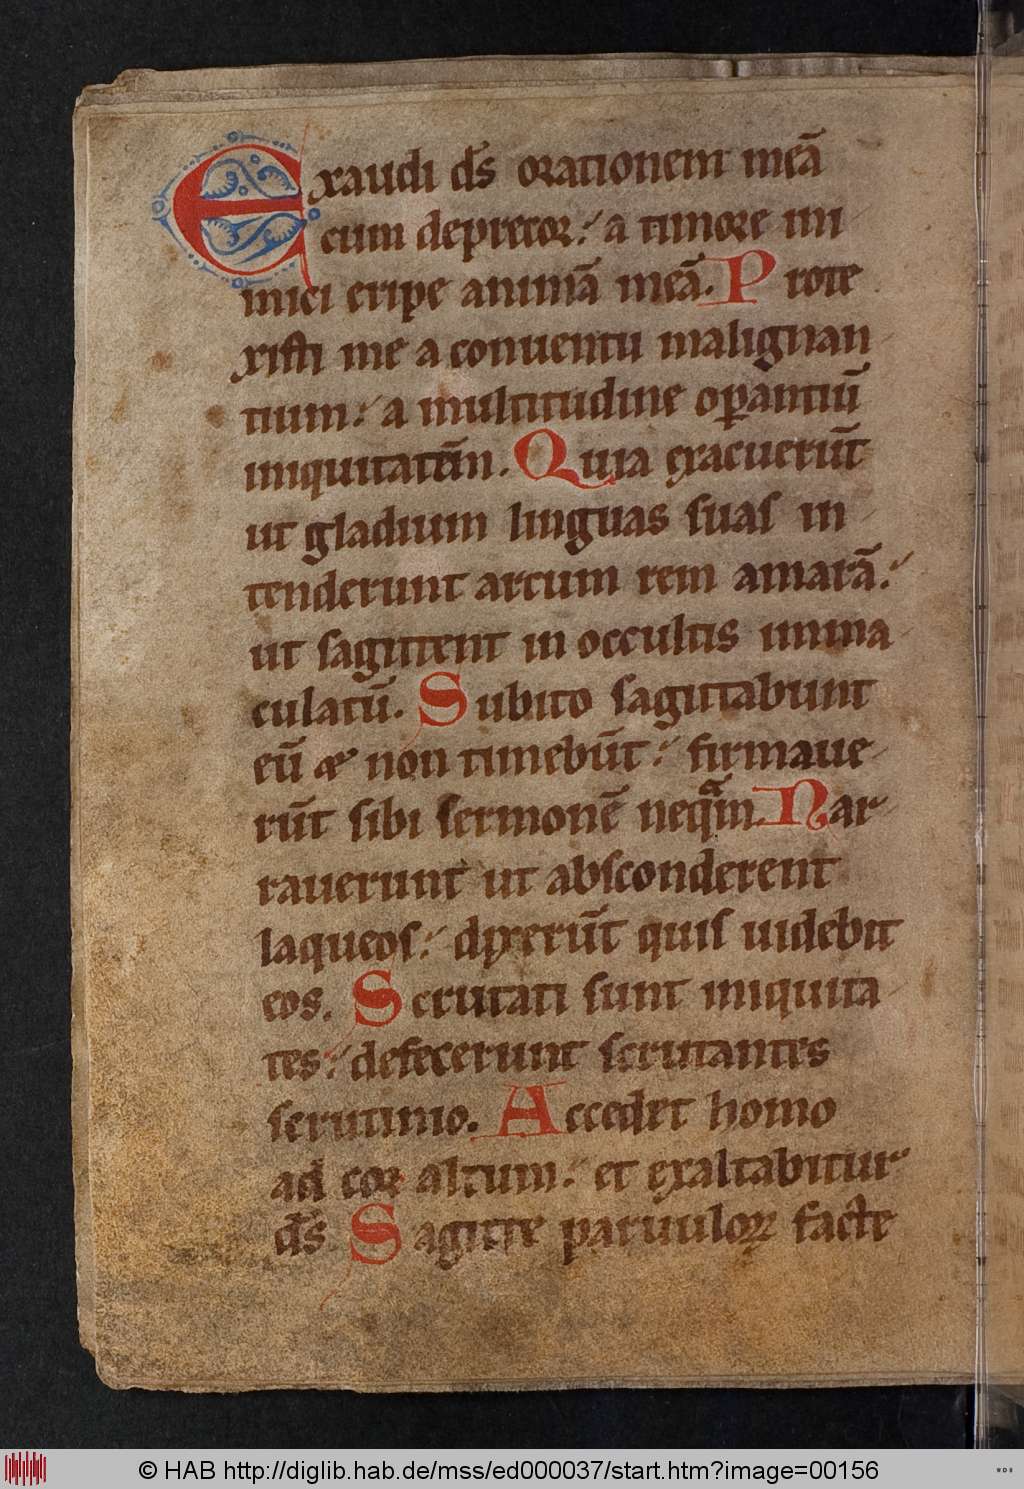 Exaudi ds̄ orationem meā
cum deprecor: a timore ini
mici eripe animā meā. Prote
xisti me a conuentu malignan
tium: a multitudine opantiū
iniquitatem. Quia exacuerūt
ut gladium linguas suas in
tenderunt arcum rem amarā:
ut sagittent in occultis imma
culatū. Subito sagittabunt
eū & non timebūt: firmaue
rūt sibi sermonē neqam. Nar
rauerunt ut absconderent
laqueos: dixerūt quis uidebit
eos. Scrutati sunt iniquita
tes: defecerunt scrutantes
scrutinio. Accedet homo
ad cor altum: et exaltabitur
ds̄ Sagitte paruuloꝝ facte
© HAB http://diglib.hab.de/mss/ed000037/start.htm?image=00156